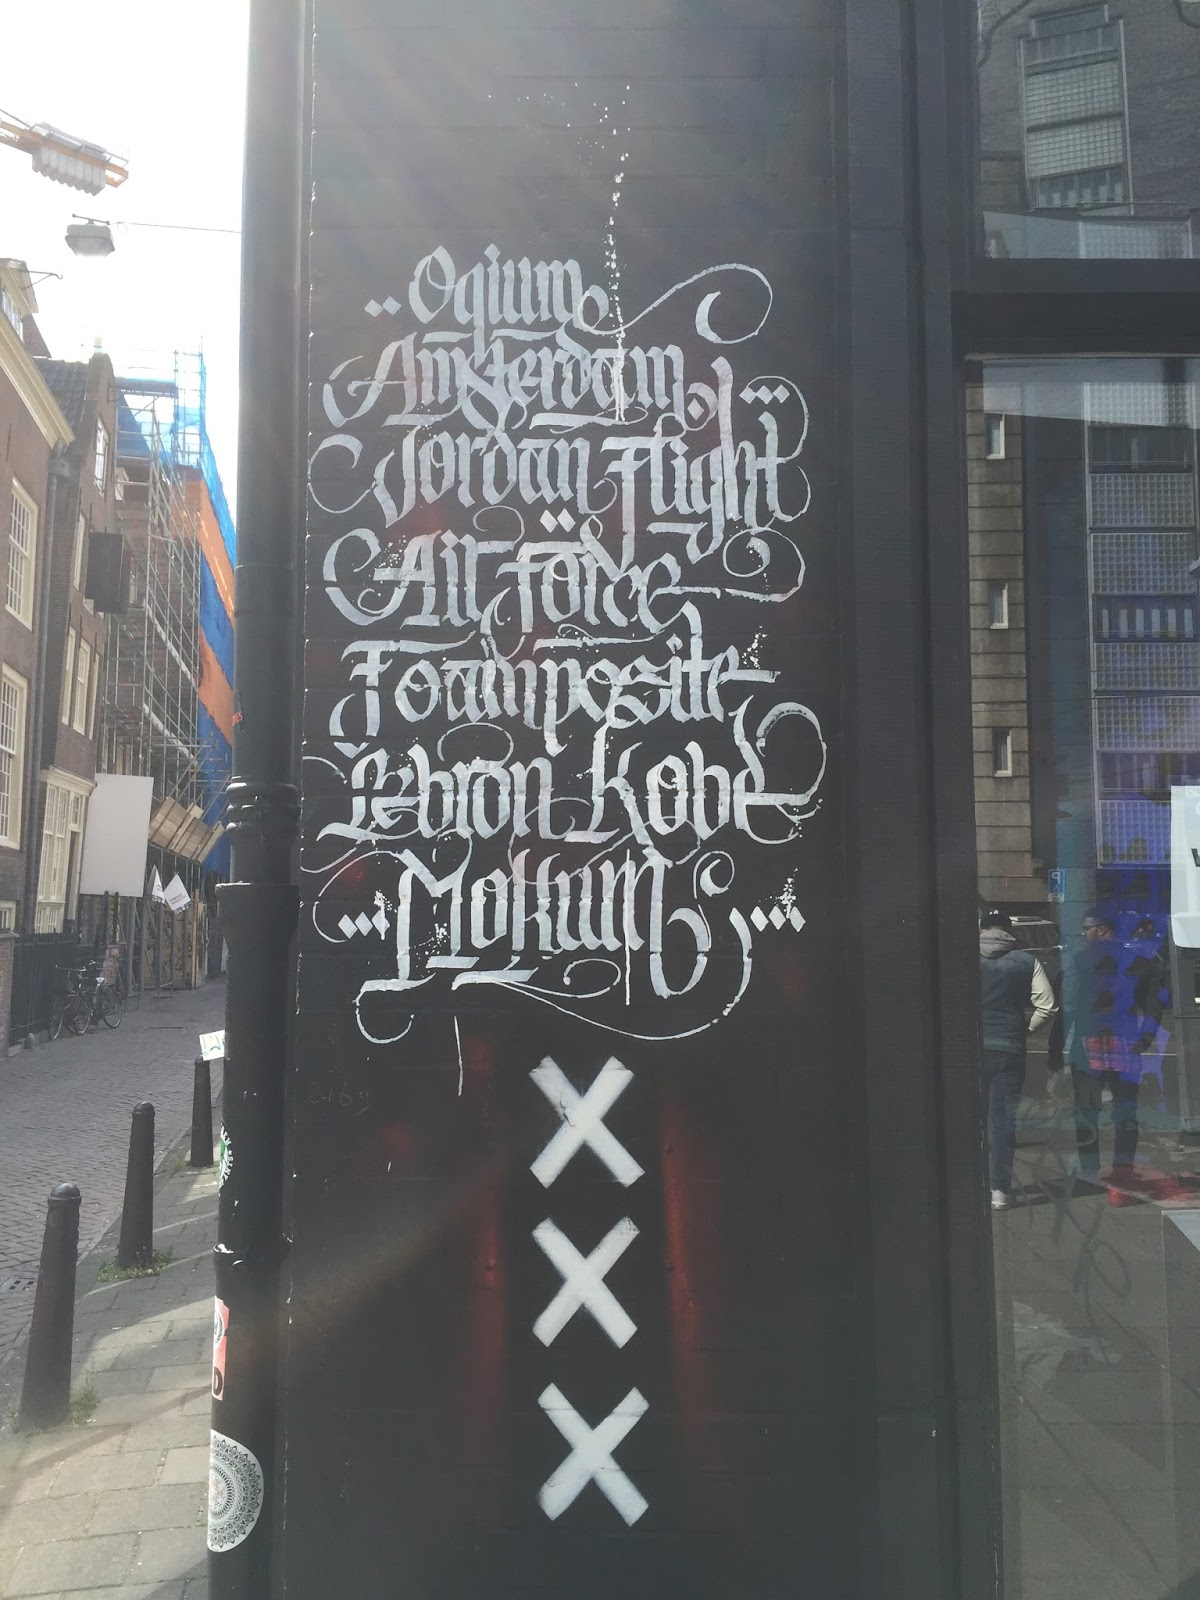 Ogium
Amsterdam
Jordan Flight
Air Force
Foamposite
Lebron Kobe
Mokum
X
X
X